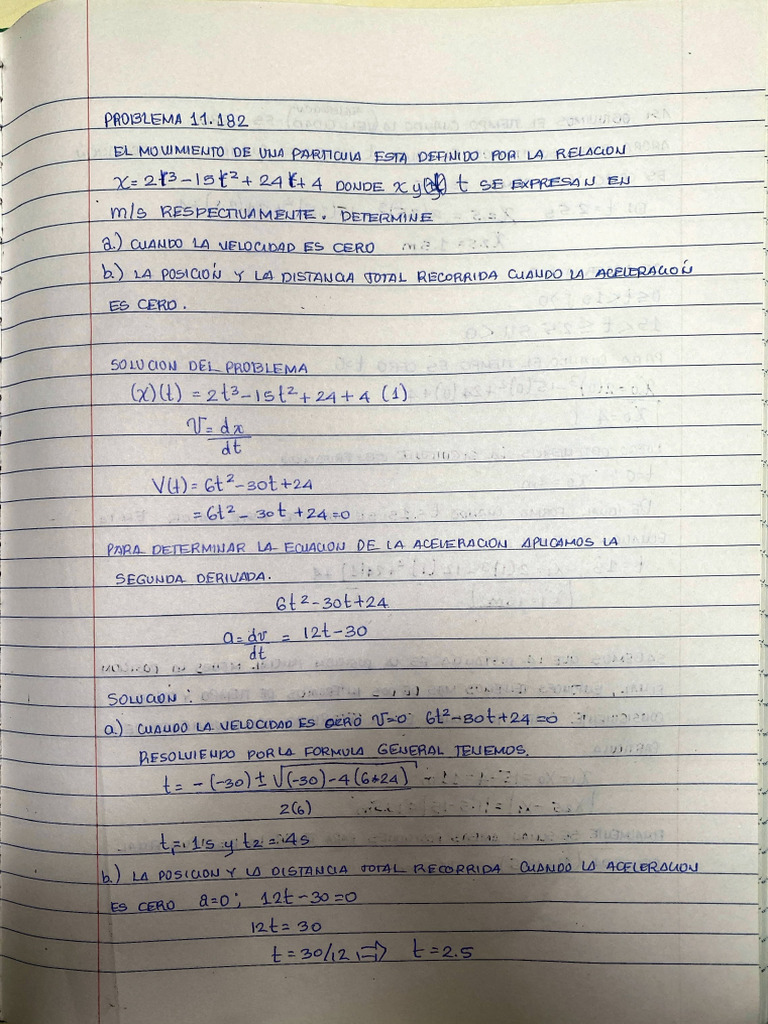 PROBLEMA 11.182
EL MOVIMIENTO DE UNA PARTICULA ESTA DEFINIDO POR LA RELACION
x = 2t³ - 15t² + 24t + 4 DONDE x y t SE EXPRESAN EN
m/s RESPECTIVAMENTE. DETERMINE
a.) CUANDO LA VELOCIDAD ES CERO
b.) LA POSICIÓN Y LA DISTANCIA TOTAL RECORRIDA CUANDO LA ACELERACIÓN
ES CERO.
SOLUCION DEL PROBLEMA
(x)(t) = 2t³ - 15t² + 24 + 4 (1)
V = dx
dt
V(t) = 6t² - 30t + 24
= 6t² - 30t + 24 = 0
PARA DETERMINAR LA ECUACION DE LA ACELERACION APLICAMOS LA
SEGUNDA DERIVADA.
6t² - 30t + 24
a = dv = 12t - 30
dt
SOLUCION:
a) CUANDO LA VELOCIDAD ES CERO V=0 6t² - 30t + 24 = 0
RESOLVIENDO POR LA FORMULA GENERAL TENEMOS.
t = -(-30) ± √(-30) - 4(6*24)
2(6)
t₁ = 1s y t₂ = 4s
b.) LA POSICION Y LA DISTANCIA TOTAL RECORRIDA CUANDO LA ACELERACION
ES CERO a=0; 12t - 30 = 0
12t = 30
t = 30/12 => t = 2.5